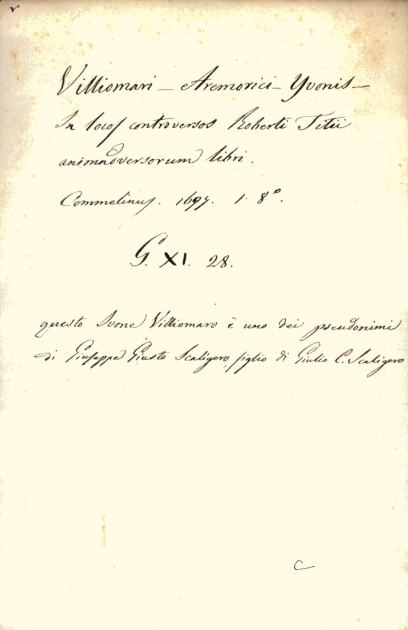 Villiomari – Aremorici – Yvonis –
In locos controversos Roberti Titii
animadversorum libri.
Commelinus. 1697. 1. 8°.
G. XI. 28.
questo Ivone Villiomaro è uno dei pseudonimi
di Giuseppe Giusto Scaligero, figlio di Giulio C. Scaligero
C